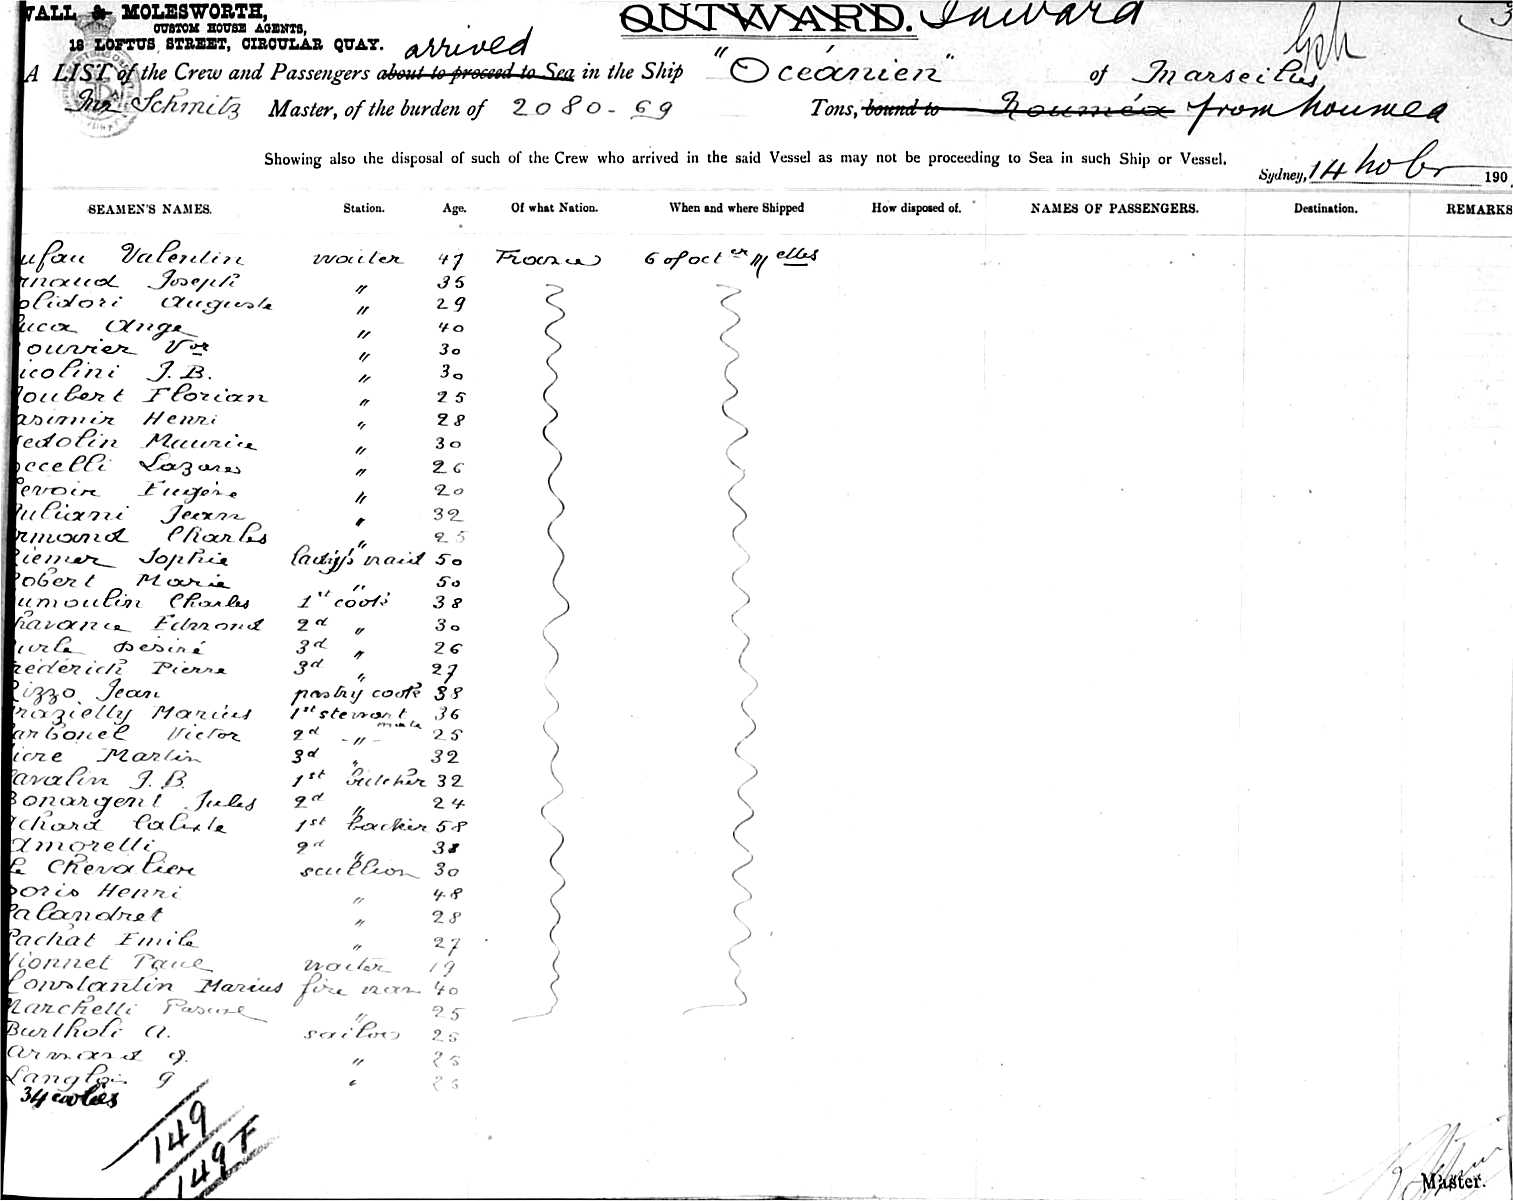 WALL & MOLESWORTH,
CUSTOM HOUSE AGENTS,
18 LOFTUS STREET, CIRCULAR QUAY.
OUTWARD. Inward
3
arrived
A LIST of the Crew and Passengers about to proceed to Sea in the Ship "Océanien" of Marseilles
Schmitz Master, of the burden of 2080-69 Tons, bound to Nouméa from Noumea
Showing also the disposal of such of the Crew who arrived in the said Vessel as may not be proceeding to Sea in such Ship or Vessel.
Sydney, 14 Nobr 190
SEAMEN'S NAMES. Station. Age. Of what Nation. When and where Shipped How disposed of. NAMES OF PASSENGERS. Destination. REMARKS
ufau Valentin waiter 47 France 6 of octer Melles
rnaud Joseph " 35
olidori Auguste " 29
uca Ange " 40
ouvier Vor " 30
icolini J.B. " 30
oubert Florian " 25
asimir Henri " 28
edolin Maurice " 30
occelli Lazares " 26
ervoin Eugène " 20
uliani Jean " 32
rmand Charles " 25
iemer Sophie lady's maid 50
obert Marie " 50
umoulin Charles 1st cook 38
havance Edmond 2d " 30
urle Désiré 3d " 26
rédérich Pierre 3d " 27
Rizzo Jean pastry cook 38
razielly Marius 1st stewart 36
mate
arbonel Victor 2d -"- 25
iere Martin 3d " 32
avalin J.B. 1st butcher 32
Bonargent Jules 2d " 24
chard Calixte 1st backer 58
amorelli 2d " 38
Le Chevalier scullion 30
Doris Henri " 48
alandret " 28
Pachat Emile " 27
ionnet Paul waiter 19
Constantin Marius fire man 40
Marchetti " 25
Burtholi A. sailor 25
armand G. " 25
Langlois G " 25
34 coolies
149
149 F
Master.